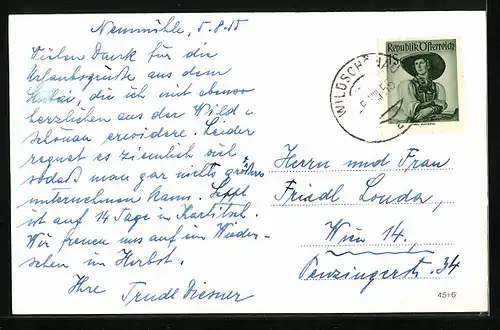 Neumühle, 5.8.55
Vielen Dank für die
Urlaubsgrüße aus dem
Stubai, die ich mit ebenso
herzlichen aus der Wild=
schönau erwidere. Leider
regnet es ziemlich viel,
sodaß man gar nichts größeres
unternehmen kann. Seppl
ist auf 14 Tage in Kartitsch.
Wir freuen uns auf ein Wieder-
sehen im Herbst.
Ihre Trudl Diesner
Republik Österreich
WILDSCHÖNAU
Herrn und Frau
Friedl Londa,
Wien 14.,
Penzingerstr. 34
4516